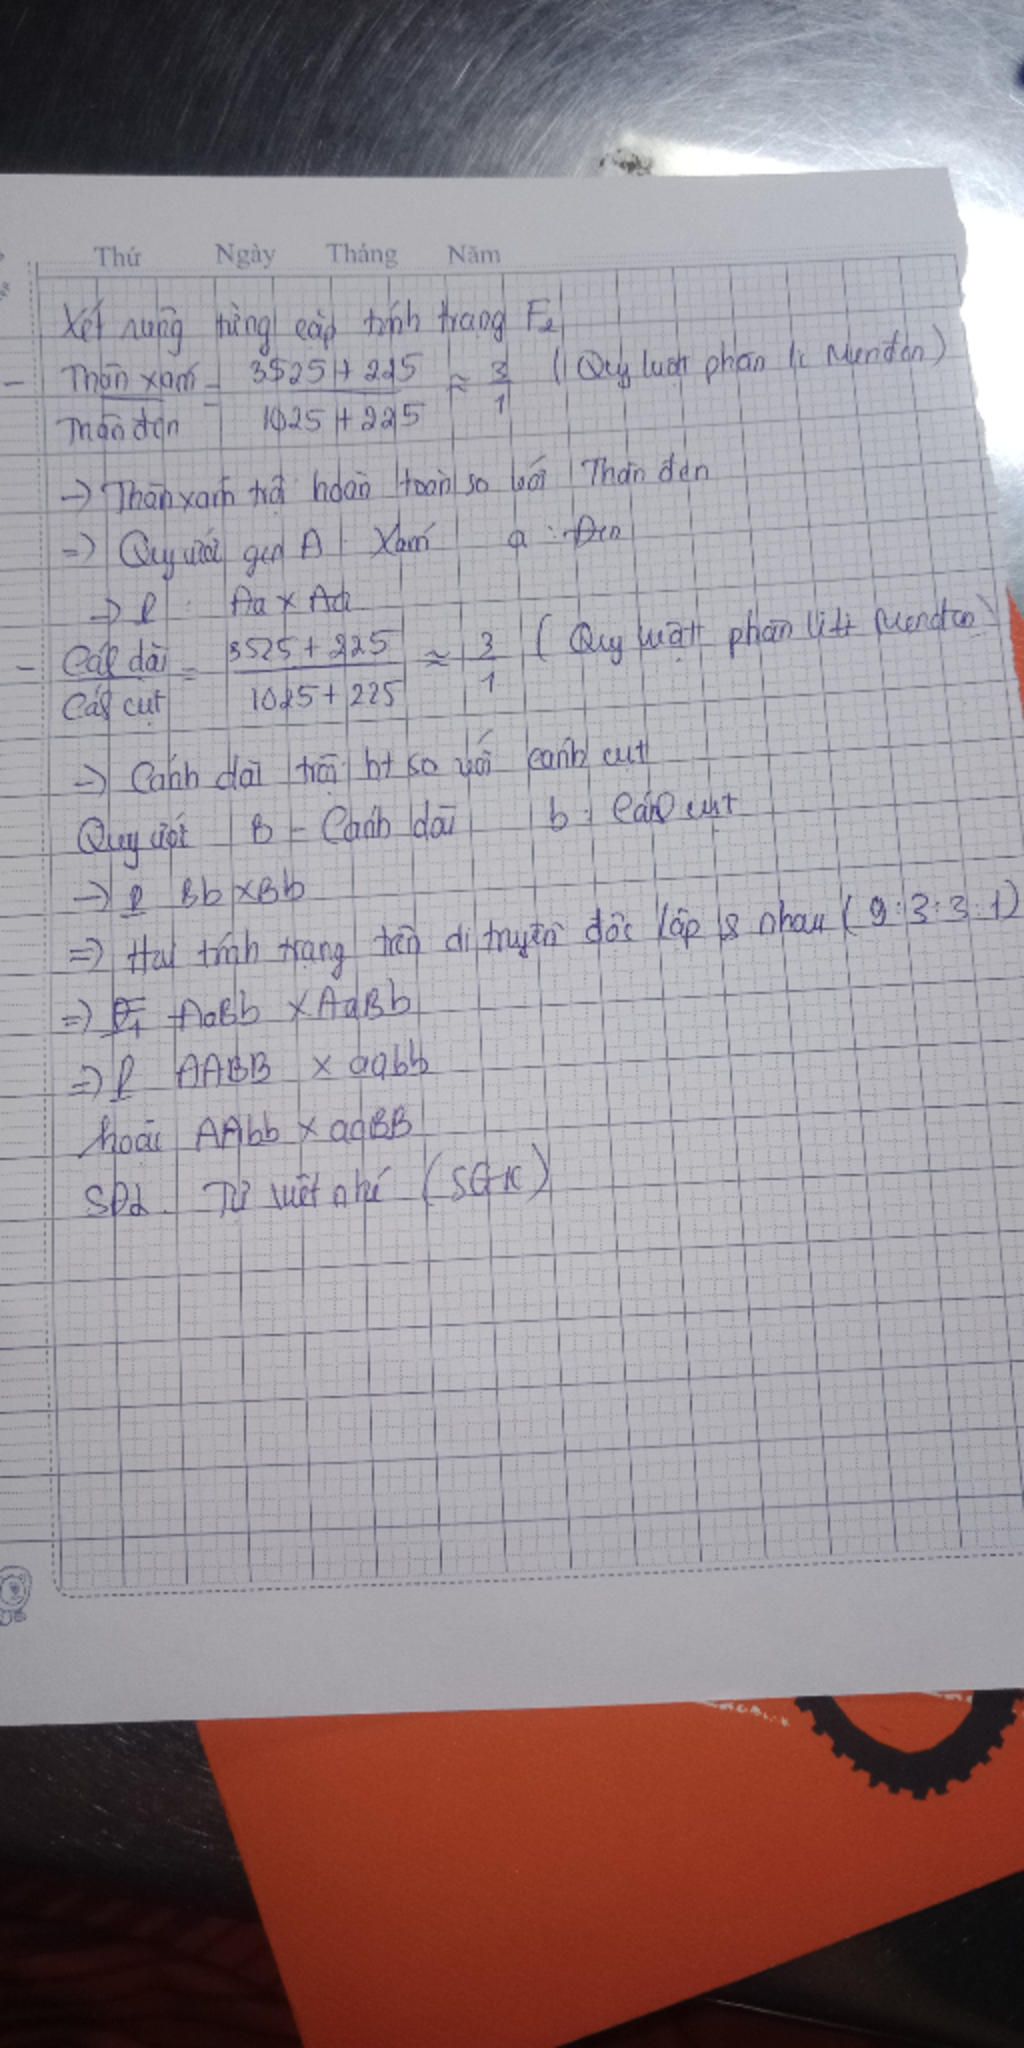 Thứ Ngày Tháng Năm
Xét riêng từng cặp tính trạng F2
- Thân xám / Thân đen = 3525 + 225 / 1025 + 225 ≈ 3/1 (Quy luật phân li Menđen)
-> Thân xám trội hoàn toàn so với Thân đen
=> Quy ước gen A: Xám a: Đen
-> P: Aa x Aa
- Cánh dài / Cánh cụt = 3525 + 225 / 1025 + 225 ≈ 3/1 (Quy luật phân li Menđen)
-> Cánh dài trội ht so với cánh cụt
Quy ước B - Cánh dài b: Cánh cụt
-> P Bb x Bb
=> Hai tính trạng trên di truyền độc lập nhau (9:3:3:1)
=> F1 AaBb x AaBb
=> P AABB x aabb
hoặc AAbb x aaBB
SĐL Tự viết nhé (SGK)